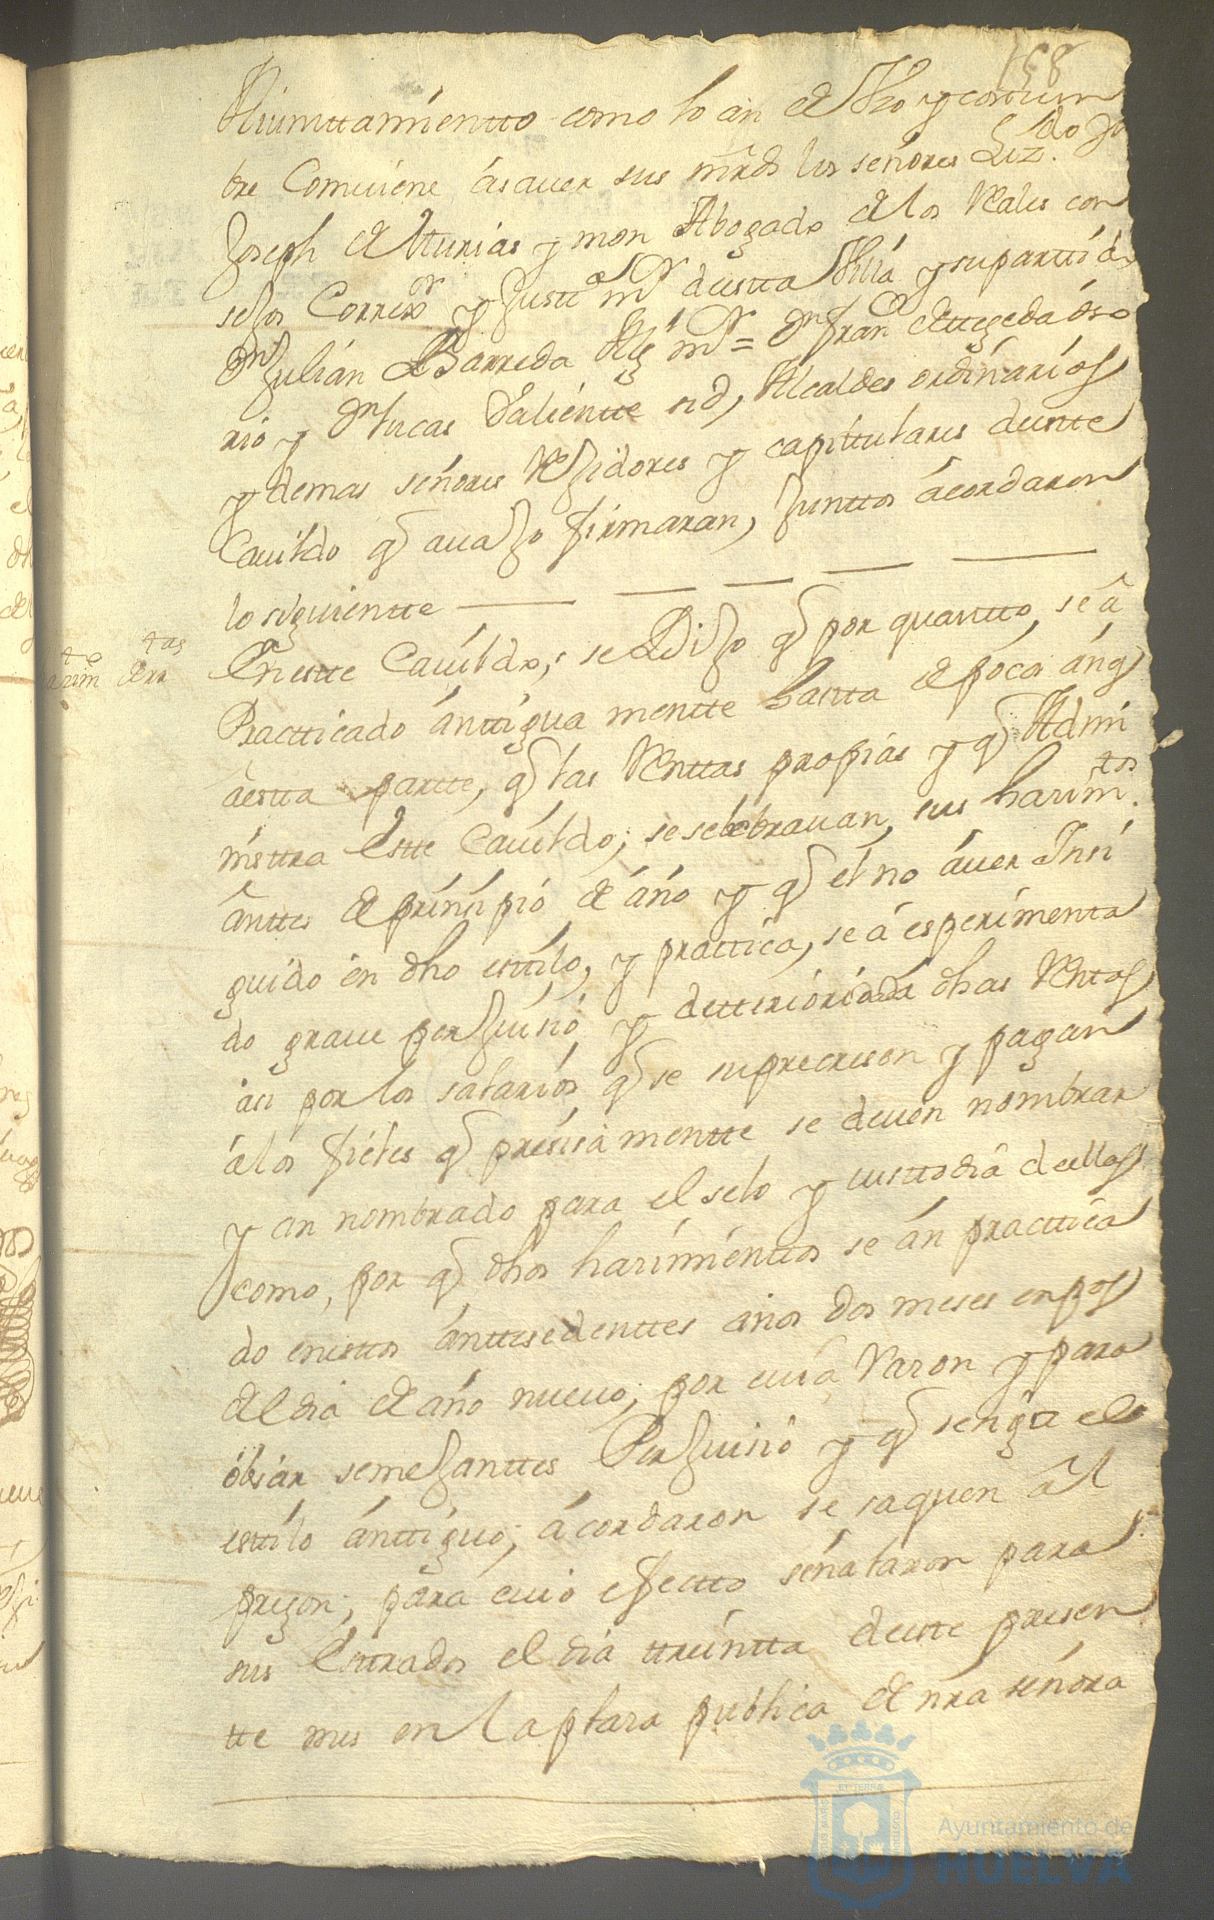 158
Aiuntamientto como lo an de Vso y costum
bre Comviene ásauer sus mrds los señores Lizdo Dn
Joseph de Asturias y mon Abogado de los Reales con
sejos Correxor y Justa mr destta Villa y supartido
Dn Julián Barreda Alg mr = Dn Franco de Quezada óso
rió y Dn Lucas Valientte Alcaldes ordináriós
y demas señores Rejidores y capittulares deste
Cauildo q auajo firmaran, Junttos ácordaron
lo siguientte
tto tas
arim Rn
En estte Cauildo, se Dijo q por quantto, se á
Practticado ánttigua mentte hasta de pocos áños
áesta partte, q las Renttas propias y q Admi
nisttra Estte Cauildo; se selebrauan, sus harimtos
ánttes de prinsipió de áño y q el no áuer Insi
guido en dho estilo, y practtica, se á esperimenta
do graue perjuisió, y detterioridad dhas Rentas
asi por los salariós q se supresreson y pagan
álos fieles q presisa mentte se deuen nombrar
y an nombrado para el selo y custtodia deellas
como, por q dhos harimienttos se án practtica
do en esttos ánttesedenttes años dos meses enpos
del dia de año nueuo; por cuia Razon y para
óbiar semejanttes Perjuisió y q senga el
estilo ánttiguo; ácordaron se saquen ál
pregon; para cuio efectto señalaron para
sus Esttrados el dia ttreintta deeste presen
tte mes en la plaza publica de nra señora
ET TERRAE
Ayuntamiento de
HUELVA